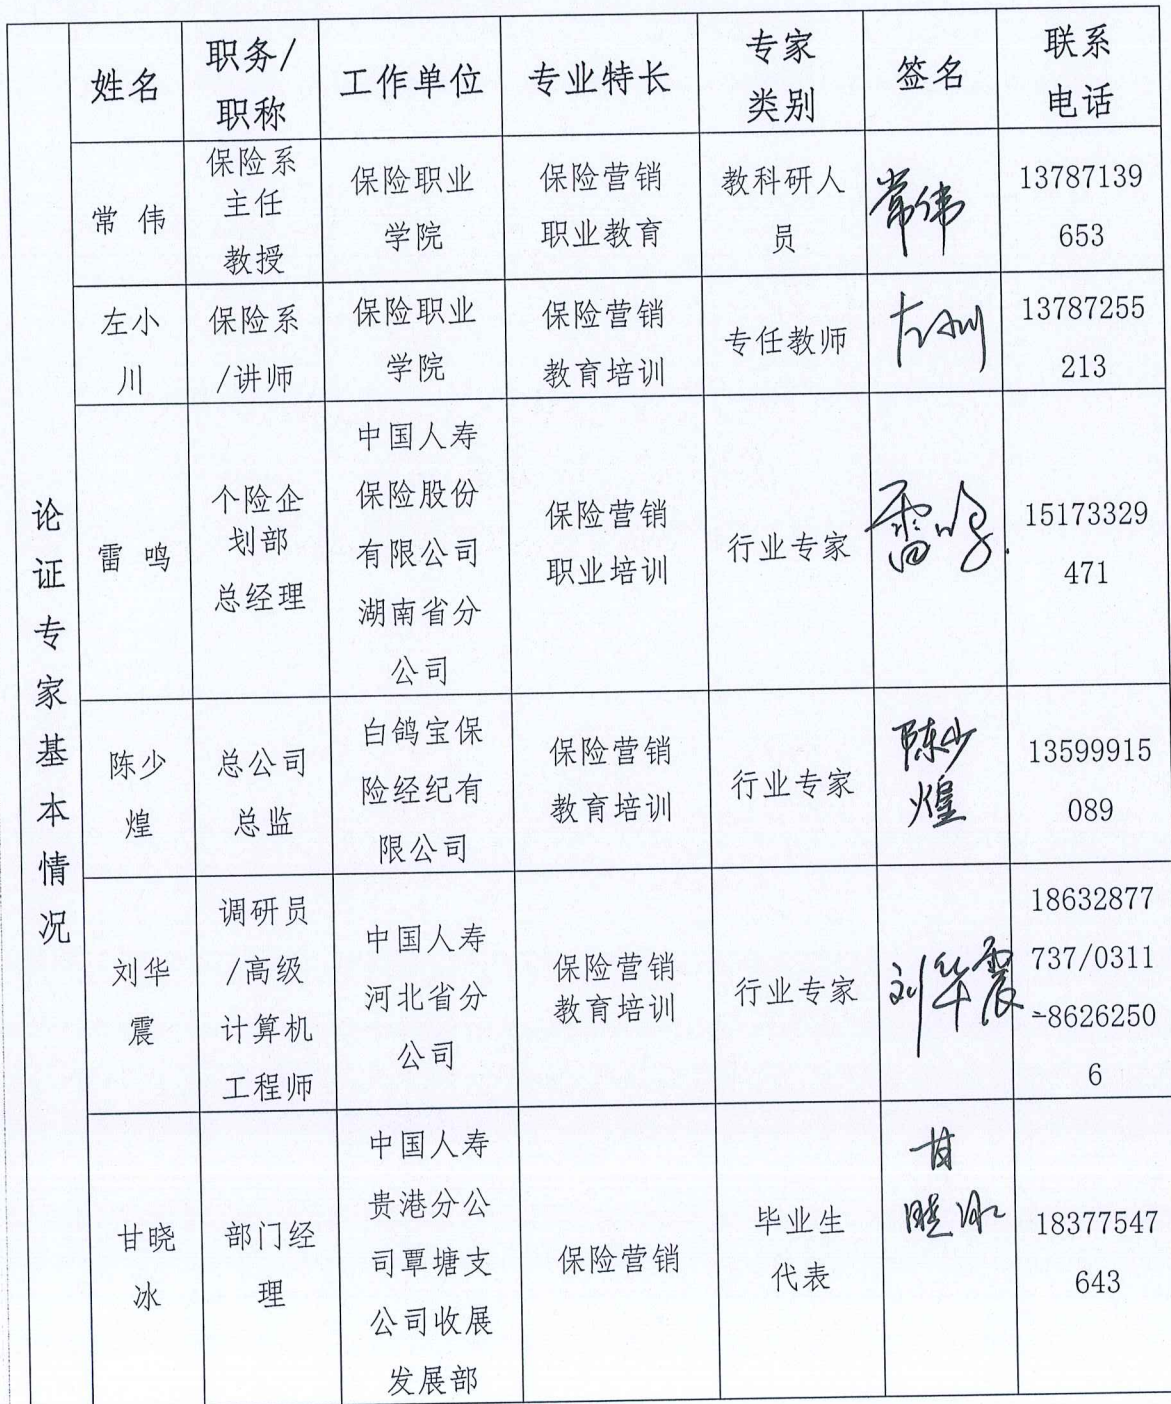 论证专家基本情况
姓名
职务/
职称
工作单位
专业特长
专家
类别
签名
联系
电话
常 伟
保险系
主任
教授
保险职业
学院
保险营销
职业教育
教科研人
员
常伟
13787139
653
左小
川
保险系
/讲师
保险职业
学院
保险营销
教育培训
专任教师
左小川
13787255
213
雷 鸣
个险企
划部
总经理
中国人寿
保险股份
有限公司
湖南省分
公司
保险营销
职业培训
行业专家
雷鸣
15173329
471
陈少
煌
总公司
总监
白鸽宝保
险经纪有
限公司
保险营销
教育培训
行业专家
陈少
煌
13599915
089
刘华
震
调研员
/高级
计算机
工程师
中国人寿
河北省分
公司
保险营销
教育培训
行业专家
刘华震
18632877
737/0311
-8626250
6
甘晓
冰
部门经
理
中国人寿
贵港分公
司覃塘支
公司收展
发展部
保险营销
毕业生
代表
甘
晓冰
18377547
643